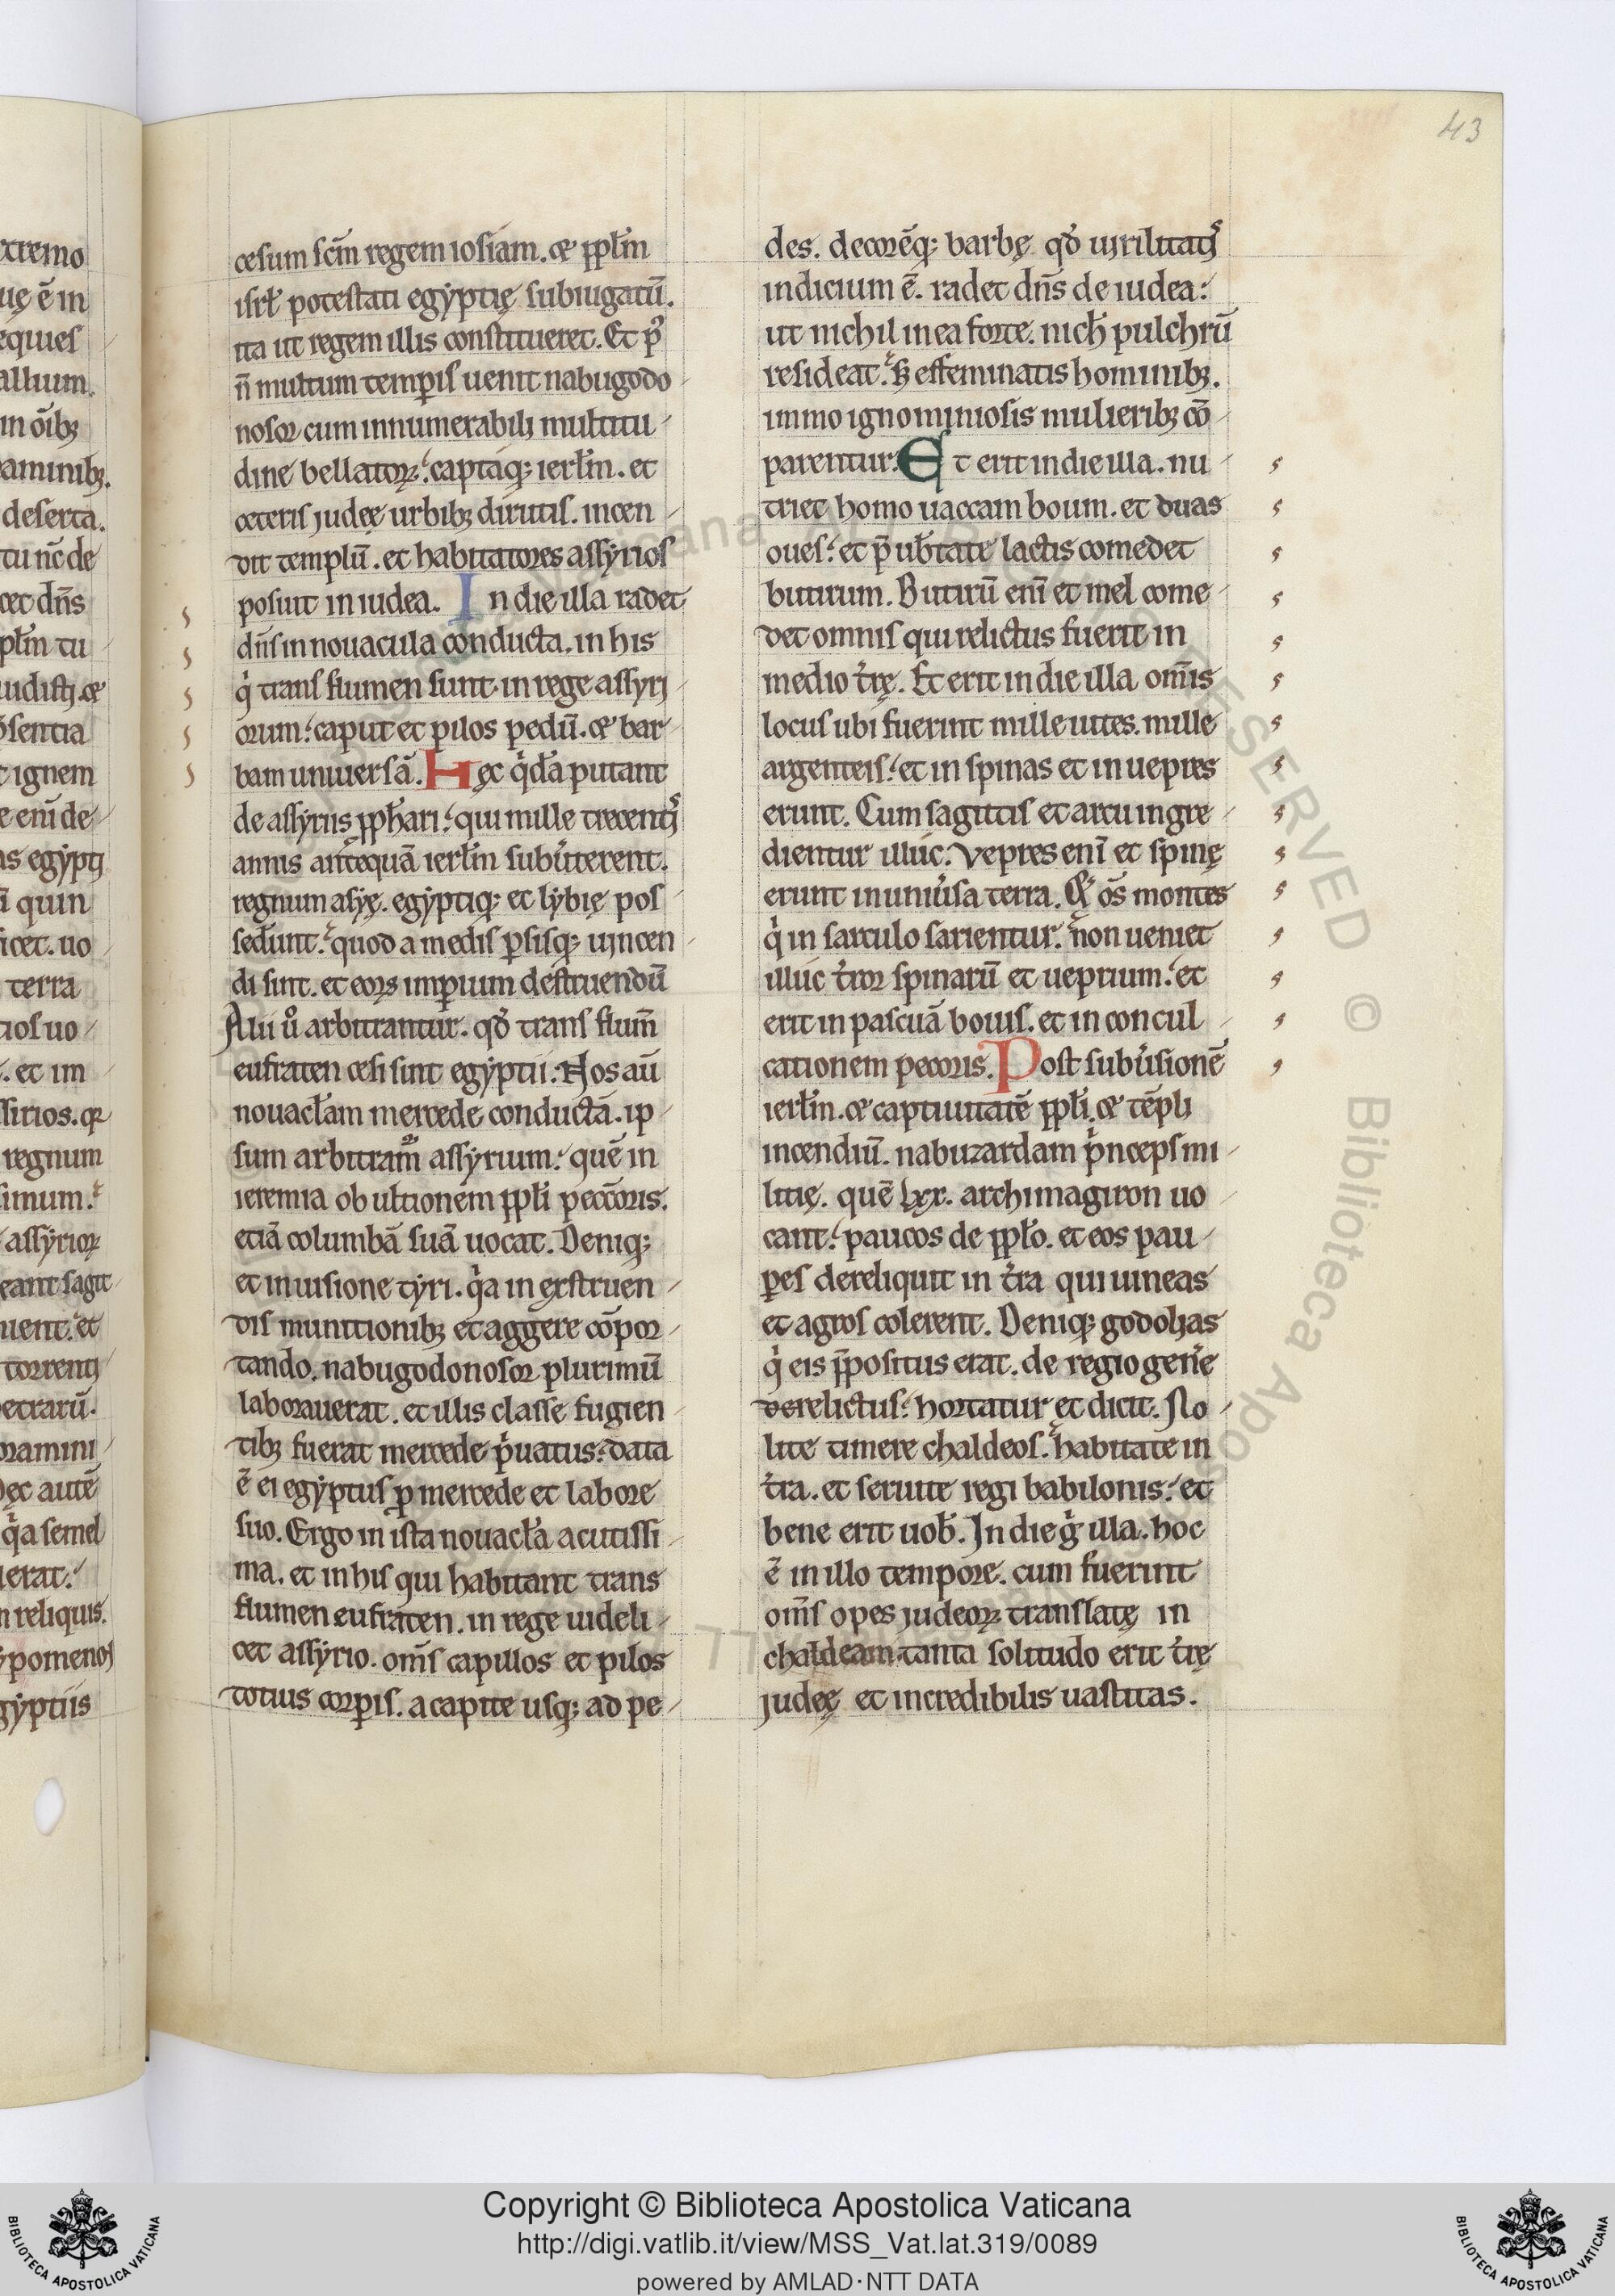 43
xtremo
uę ē in
equies
allium.
in oībꝫ
aminibꝫ.
deserta.
tu nc̄ de
cet dn̄s
pl̄m tu
udistis. ⁊
sentia
ignem
e enī de
as egypti
quin
icet. uo
terra
tios uo
. et im
sirios. qꝛ
regnum
simum.
assyrioꝝ
eant sagit
uent. et
torrenti
etrarū.
ramini
ęc autē
qͥa semel
erat.
n reliquis.
ypomenos
gyptiis
cesum scm̄ regem iosiam. ⁊ ppl̄m
isrl̄ potestati egyptię subiugatū.
ita ut regem illis constitueret. Et pꝰ
n̄ multum temꝑis uenit nabugodo
nosor cum innumerabili multitu
dine bellatoꝝ. captaqꝫ ierl̄m. et
ceteris judeę urbibꝫ dirutis. incen
dit templū. et habitatores assyrios
posuit in iudea. In die illa radet
dn̄s in nouacula conducta. in his
qͥ trans flumen sunt. in rege assyri
orum. caput et pilos pedū. ⁊ bar
bam uniuersā. Hęc qͥdā putant
de assyriis ꝓphari. qui mille trecentis
annis anteqūā ierl̄m subuͥterent.
regnum asyę. egyptiqꝫ et lybię pos
sederunt. quod a medis ꝑsisqꝫ uincen
di sint. et eoꝝ imꝑium destruendū
Alii uͦ arbitrantur. qđ trans flum̄
eufraten cesi sint egyptii. Nos aū
nouacl̄am mercede conductā. ip
sum arbitramͬ assyrium. quē in
ieremia ob ultionem ppl̄i peccōris.
etiā columbā suā uocat. Deniqꝫ
et in uisione tyri. qͥa in exstruen
dis munitionibꝫ et aggere cōpor
tando. nabugodonosor plurimū
laborauerat. et illis classe fugien
tibꝫ fuerat mercede pͥuatus. data
ē ei egyptus ꝓ mercede et labore
suo. Ergo in ista nouacl̄a acutissi
ma. et in his qui habitant trans
flumen eufraten. in rege uideli
cet assyrio. om̄s capillos et pilos
totius corꝑis. a capite usqꝫ ad pe
des. decorēqꝫ barbę qđ uirilitatis
indicium ē. radet dn̄s de iudea.
ut nichil in ea forte. nich̄ pulchrū
resideat. sꝫ effeminatis hominibꝫ.
immo ignominiosis mulieribꝫ cō
parentur. Et erit in die illa. nu
triet homo uaccam boum. et duas
oues. et p̄ ub̄tate lactis comedet
butirum. Butirū enī et mel come
det omnis qui relictus fuerit in
medio tr̄ę. Et erit in die illa om̄is
locus ubi fuerint mille uites. mille
argenteis. et in spinas et in uepres
erunt. Cum sagittis et arcu ingre
dientur illuc. Vepres enī et spinę
erunt in uniuͥsa terra. Et om̄s montes
qͥ in sarculo sarientur. non ueniet
illuc tͥror spinarū et ueprium. et
erit in pascuā bouis. et in concul
cationem pecoris. Post subuͥsionē
ierl̄m. ⁊ captiuitatē ppl̄i. ⁊ tēpli
incendiū. nabuzardam pͥnceps mi
litię. quē lxx. archimagiron uo
cant. paucos de ppl̄o. et eos pau
ꝑes dereliquit in tr̄a qui uineas
et agros colerent. Deniqꝫ godolias
qͥ eis p̄positus erat. de regio gen̄e
derelictus. hortatur et dicit. No
lite timere chaldeos. habitate in
tr̄a. et seruite regi babilonis. et
bene erit uob̄. In die gͥ illa. hoc
ē in illo tempore. cum fuerint
om̄s opes judeoꝝ translatę in
chaldeam. tanta solitudo erit tr̄ę
judeę et incredibilis uastitas.
Copyright © Biblioteca Apostolica Vaticana
http://digi.vatlib.it/view/MSS_Vat.lat.319/0089
powered by AMLAD·NTT DATA
BIBLIOTECA APOSTOLICA VATICANA
BIBLIOTECA APOSTOLICA VATICANA